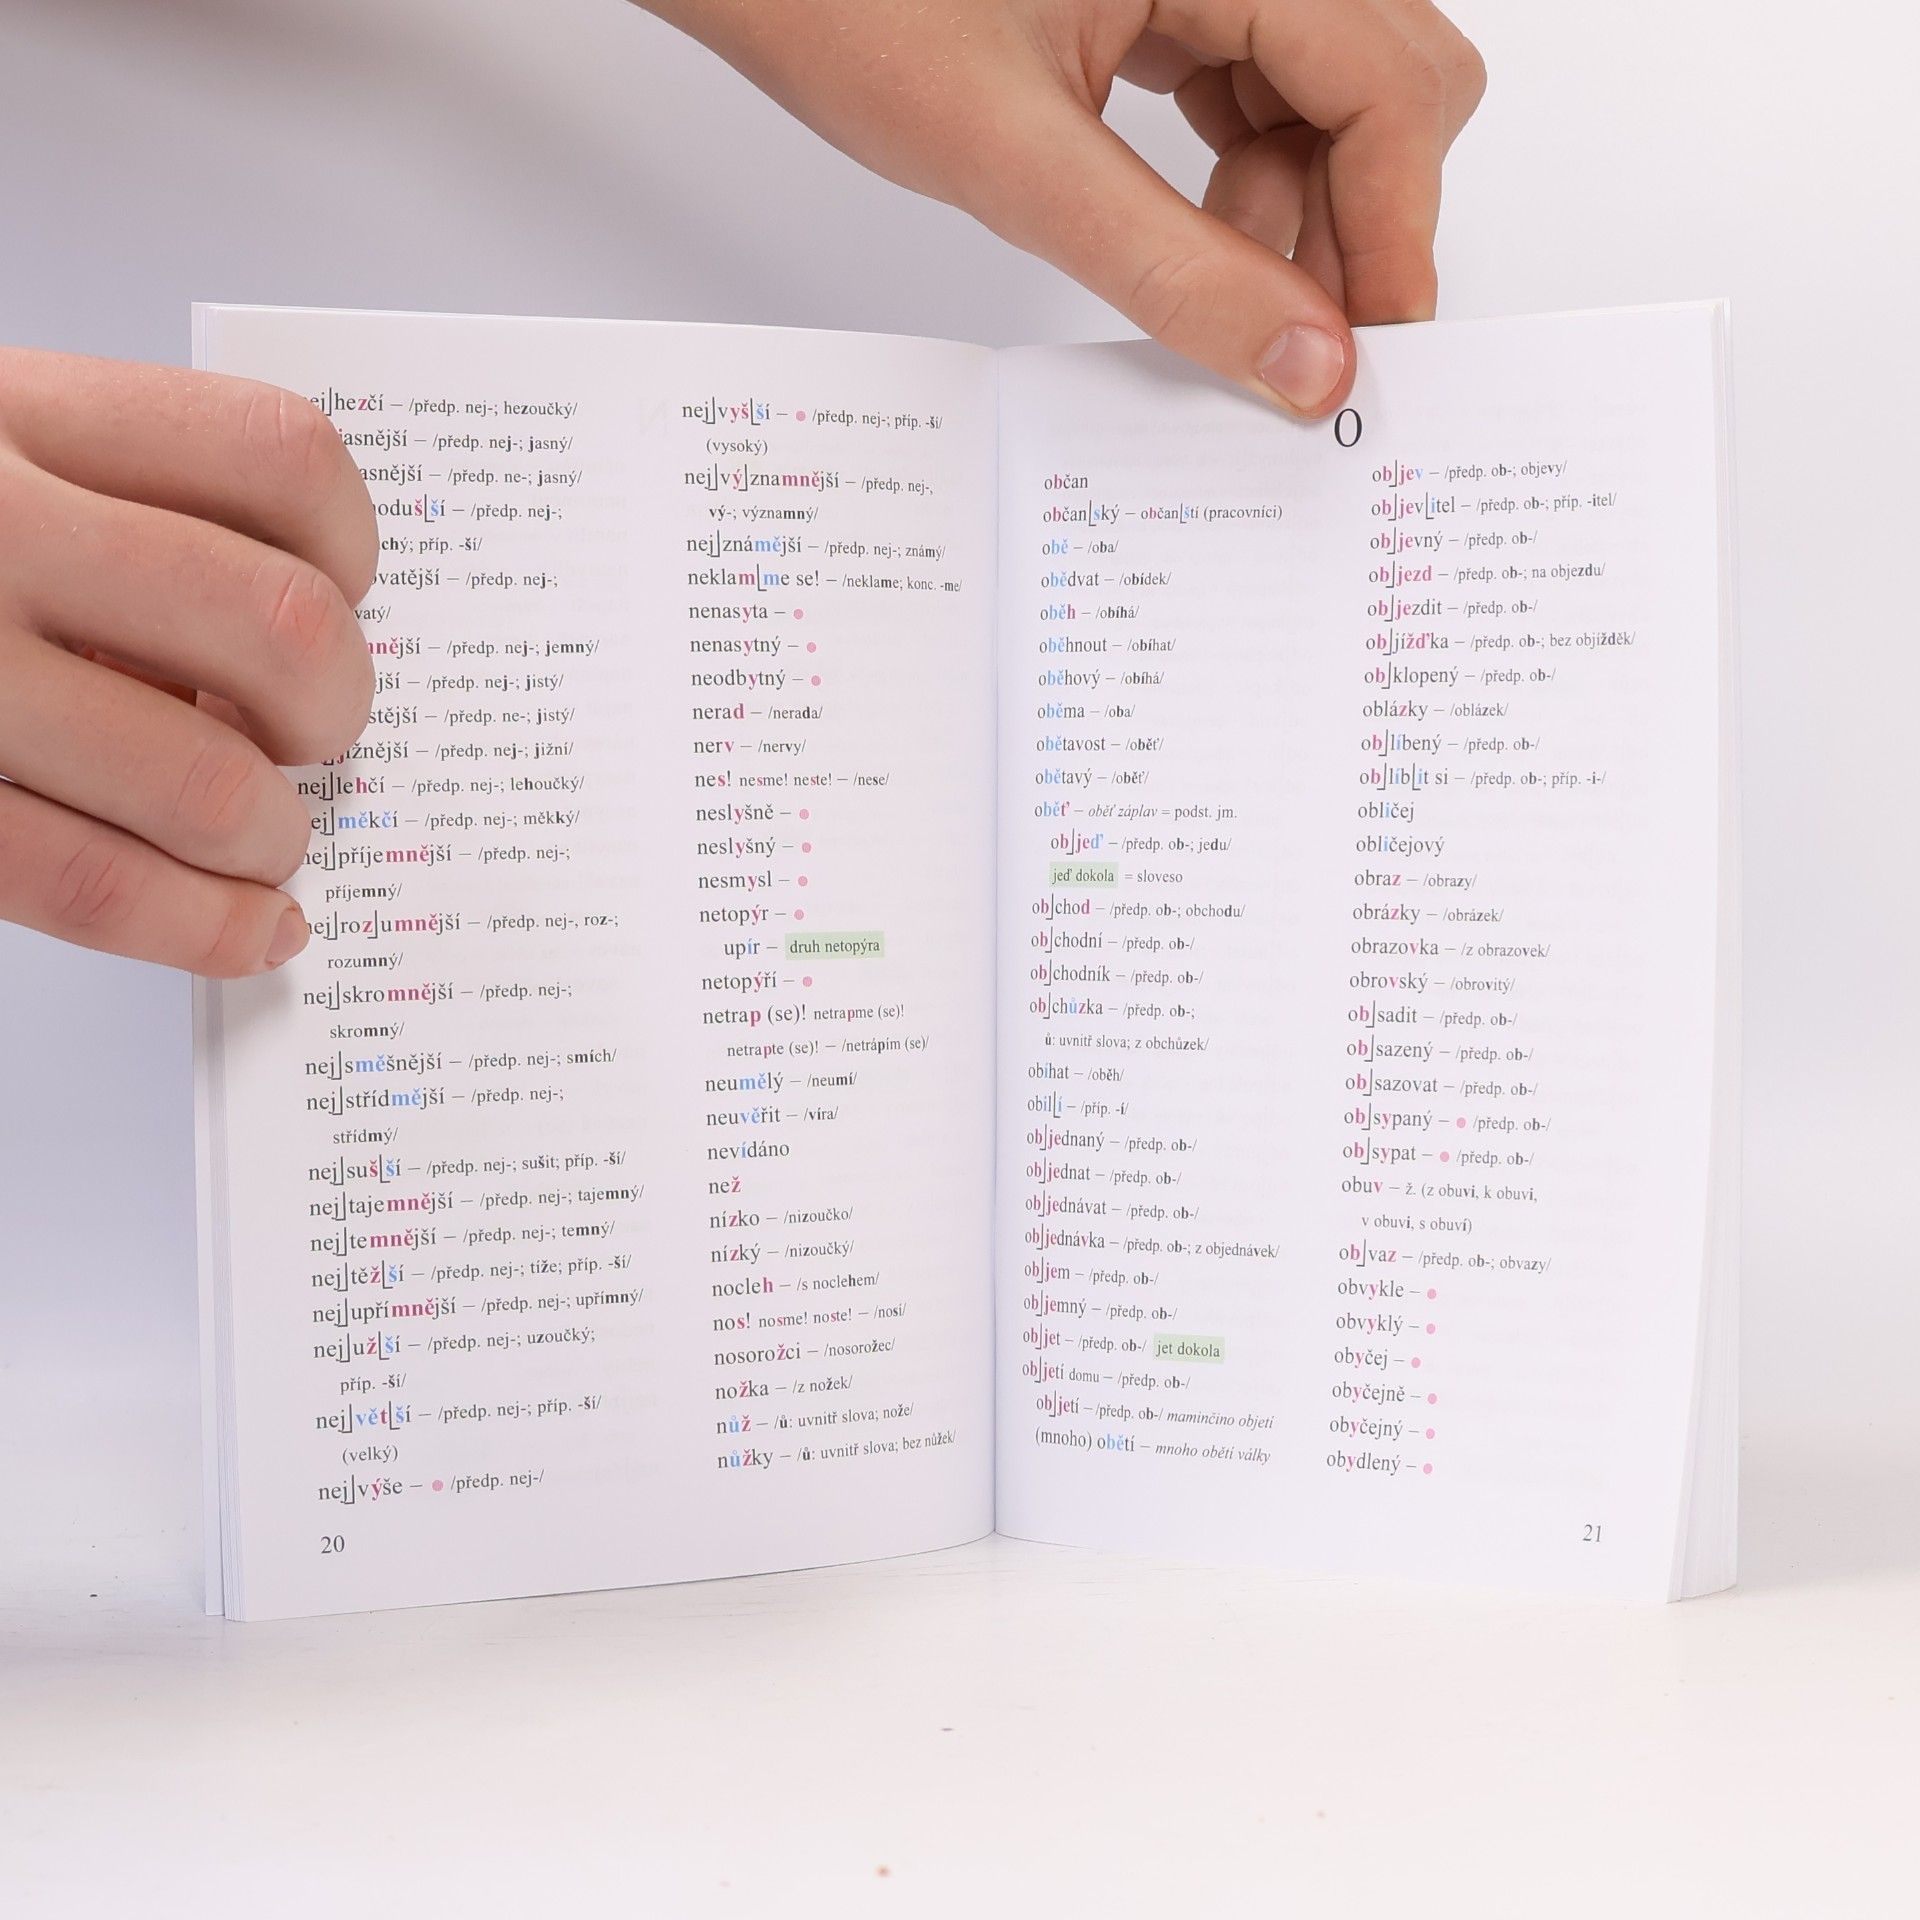 nej|hezčí – /předp. nej-; hezoučký/
jasnější – /předp. nej-; jasný/
– /předp. ne-; jasný/
– /předp. nej-;
příp. -ší/
– /předp. nej-;
– /předp. nej-; jemný/
– /předp. nej-; jistý/
– /předp. ne-; jistý/
jižnější – /předp. nej-; jižní/
nej|lehčí – /předp. nej-; lehoučký/
nej|měkčí – /předp. nej-; měkký/
nej|příjemnější – /předp. nej-;
příjemný/
nej|roz|umnější – /předp. nej-, roz-;
rozumný/
nej|skromnější – /předp. nej-;
skromný/
nej|směšnější – /předp. nej-; smích/
nej|střídmější – /předp. nej-;
střídmý/
nej|suš|ší – /předp. nej-; sušit; příp. -ší/
nej|tajemnější – /předp. nej-; tajemný/
nej|temnější – /předp. nej-; temný/
nej|těž|ší – /předp. nej-; tíže; příp. -ší/
nej|upřímnější – /předp. nej-; upřímný/
nej|už|ší – /předp. nej-; uzoučký;
příp. -ší/
nej|vět|ší – /předp. nej-; příp. -ší/
(velký)
nej|výše – ● /předp. nej-/
20
nej|vyš|ší – ● /předp. nej-; příp. -ší/
(vysoký)
nej|vý|znamnější – /předp. nej-,
vý-; významný/
nej|známější – /předp. nej-; známý/
neklam|me se! – /neklame; konc. -me/
nenasyta – ●
nenasytný – ●
neodbytný – ●
nerad – /nerada/
nerv – /nervy/
nes! nesme! neste! – /nese/
neslyšně – ●
neslyšný – ●
nesmysl – ●
netopýr – ●
upír – druh netopýra
netopýří – ●
netrap (se)! netrapme (se)!
netrapte (se)! – /netrápím (se)/
neumělý – /neumí/
neuvěřit – /víra/
nevídáno
než
nízko – /nizoučko/
nízký – /nizoučký/
nocleh – /s noclehem/
nos! nosme! noste! – /nosí/
nosorožci – /nosorožec/
nožka – /z nožek/
nůž – /ů: uvnitř slova; nože/
nůžky – /ů: uvnitř slova; bez nůžek/
O
občan
občan|ský – občan|ští (pracovníci)
obě – /oba/
obědvat – /obídek/
oběh – /obíhá/
oběhnout – /obíhat/
oběhový – /obíhá/
oběma – /oba/
obětavost – /oběť/
obětavý – /oběť/
oběť – oběť záplav = podst. jm.
ob|jeď – /předp. ob-; jedu/
jeď dokola = sloveso
ob|chod – /předp. ob-; obchodu/
ob|chodní – /předp. ob-/
ob|chodník – /předp. ob-/
ob|chůzka – /předp. ob-;
ů: uvnitř slova; z obchůzek/
obíhat – /oběh/
obil|í – /příp. -í/
ob|jednaný – /předp. ob-/
ob|jednat – /předp. ob-/
ob|jednávat – /předp. ob-/
ob|jednávka – /předp. ob-; z objednávek/
ob|jem – /předp. ob-/
ob|jemný – /předp. ob-/
ob|jet – /předp. ob-/ jet dokola
ob|jetí domu – /předp. ob-/
ob|jetí – /předp. ob-/ maminčino objetí
(mnoho) obětí – mnoho obětí války
ob|jev – /předp. ob-; objevy/
ob|jev|itel – /předp. ob-; příp. -itel/
ob|jevný – /předp. ob-/
ob|jezd – /předp. ob-; na objezdu/
ob|jezdit – /předp. ob-/
ob|jížďka – /předp. ob-; bez objížděk/
ob|klopený – /předp. ob-/
oblázky – /oblázek/
ob|líbený – /předp. ob-/
ob|líb|it si – /předp. ob-; příp. -i-/
obličej
obličejový
obraz – /obrazy/
obrázky – /obrázek/
obrazovka – /z obrazovek/
obrovský – /obrovitý/
ob|sadit – /předp. ob-/
ob|sazený – /předp. ob-/
ob|sazovat – /předp. ob-/
ob|sypaný – ● /předp. ob-/
ob|sypat – ● /předp. ob-/
obuv – ž. (z obuvi, k obuvi,
v obuvi, s obuví)
ob|vaz – /předp. ob-; obvazy/
obvykle – ●
obvyklý – ●
obyčej – ●
obyčejně – ●
obyčejný – ●
obydlený – ●
21